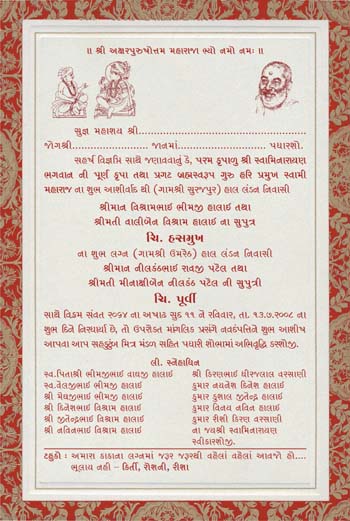 ॥ શ્રી અક્ષરપુરુષોત્તમ મહારાજા ભ્યો નમો નમઃ ॥
સુજ્ઞ મહાશય શ્રી........................................................................
જોગશ્રી........................ જાનમાં........................ પધારશો.
સહર્ષ વિજ્ઞપ્તિ સાથે જણાવવાનું કે, પરમ કૃપાળુ શ્રી સ્વામિનારાયણ
ભગવાન ની પૂર્ણ કૃપા તથા પ્રગટ બ્રહ્મસ્વરૂપ ગુરુ હરિ પ્રમુખ સ્વામી
મહારાજ ના શુભ આશીર્વાદ થી (ગામશ્રી સુરજપુર) હાલ લંડન નિવાસી
શ્રીમાન વિશ્રામભાઈ ભીમજી હાલાઈ તથા
શ્રીમતી વાલીબેન વિશ્રામ હાલાઈ ના સુપુત્ર
ચિ. હસમુખ
ના શુભ લગ્ન (ગામશ્રી ઉમરેઠ) હાલ લંડન નિવાસી
શ્રીમાન નીલકંઠભાઈ રાવજી પટેલ તથા
શ્રીમતી મિનાક્ષીબેન નીલકંઠ પટેલ ની સુપુત્રી
ચિ. પૂર્વી
સાથે વિક્રમ સંવત ૨૦૬૪ ના અષાઢ સુદ ૧૧ ને રવિવાર, તા. ૧૩.૭.૨૦૦૮ ના
શુભ દિને નિરધાર્યા છે, તો ઉપરોક્ત માંગલિક પ્રસંગે નવદંપતિને શુભ આશીષ
આપવા આપ સહકુટુંબ મિત્ર મંડળ સહિત પધારી શોભામાં અભિવૃદ્ધિ કરશોજી.
લી. સ્નેહાધિન
સ્વ.પિતાશ્રી ભીમજીભાઈ વાઘજી હાલાઈ
સ્વ.વેલજીભાઈ ભીમજી હાલાઈ
શ્રી મેઘજીભાઈ ભીમજી હાલાઈ
શ્રી દિનેશભાઈ વિશ્રામ હાલાઈ
શ્રી જીતેન્દ્રભાઈ વિશ્રામ હાલાઈ
શ્રી નવિનભાઈ વિશ્રામ હાલાઈ
શ્રી કિરણભાઈ ધીરજલાલ વરસાણી
કુમાર નયનેશ દિનેશ હાલાઈ
કુમાર કુશાલ જીતેન્દ્ર હાલાઈ
કુમાર વિનય નવિન હાલાઈ
કુમાર રીશી કિરણ વરસાણી
ના જયશ્રી સ્વામિનારાયણ
સ્વીકારશોજી.
ટહુકો : અમારા કાકાના લગ્નમાં જરૂર જરૂરથી વહેલાં વહેલાં આવજો હો....
ભુલાય નહી - કિર્તી, રોશની, રીશા